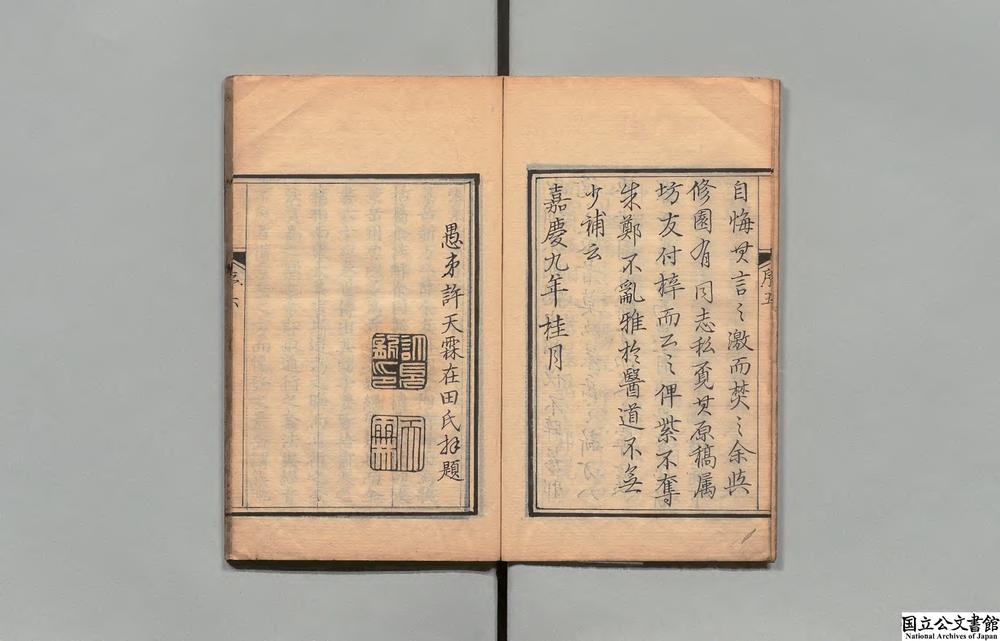 自悔其言之激而焚之余與
修園有同志私覓其原稿属
坊友付梓而公之俾紫不奪
朱鄭不亂雅於醫道不無
少補云
嘉慶九年桂月
序五
愚弟許天霖在田氏拜題
天霖
序六
国立公文書館
National Archives of Japan